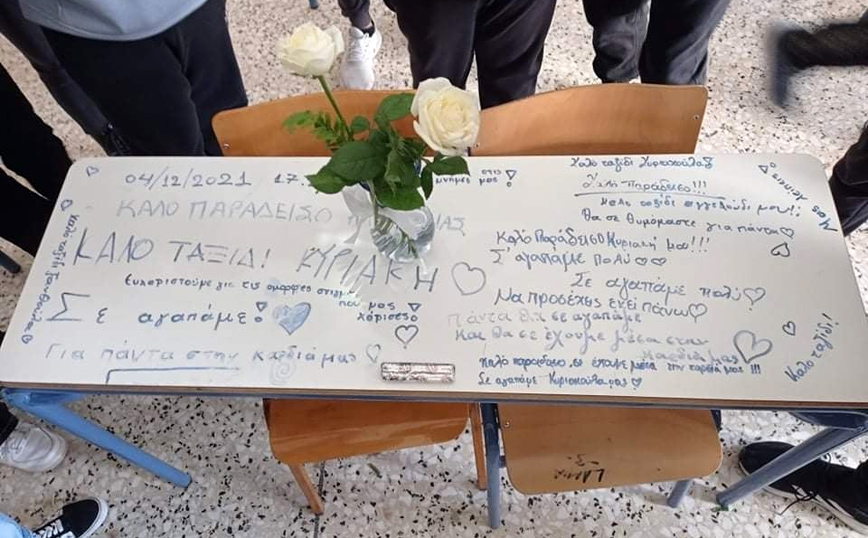 04/12/2021 17..
ΚΑΛΟ ΠΑΡΑΔΕΙΣΟ
ΚΑΛΟ ΤΑΞΙΔΙ ΚΥΡΙΑΚΗ
Ευχαριστούμε για τις ομορφες στιγμ
που μας
χάρισες
Σε αγαπάμε!
Για πάντα στην καρδιά μας
στις
μνήμες μας!
Καλό ταξίδι
Παράδεισο!!!
Καλο ταξίδι αγγελούδι μου!!
Θα σε θυμόμαστε για πάντα
Καλό Παράδεισο Κυριακή μου!!!
Σ'αγαπάμε πολύ
Σε αγαπάμε πολύ
Να προσέχεις εκεί πάνω
Πάντα θα σε αγαπάμε
και θα σε έχουμε μέσα στην
καρδιά μας
Καλό παράδεισο, σε έχουμε μέσα στην καρδιά μας !!!
Σε αγαπάμε Κυριακούλα μας
Μας λείπεις!
Καλο ταξίδι!
Καλό ταξίδι